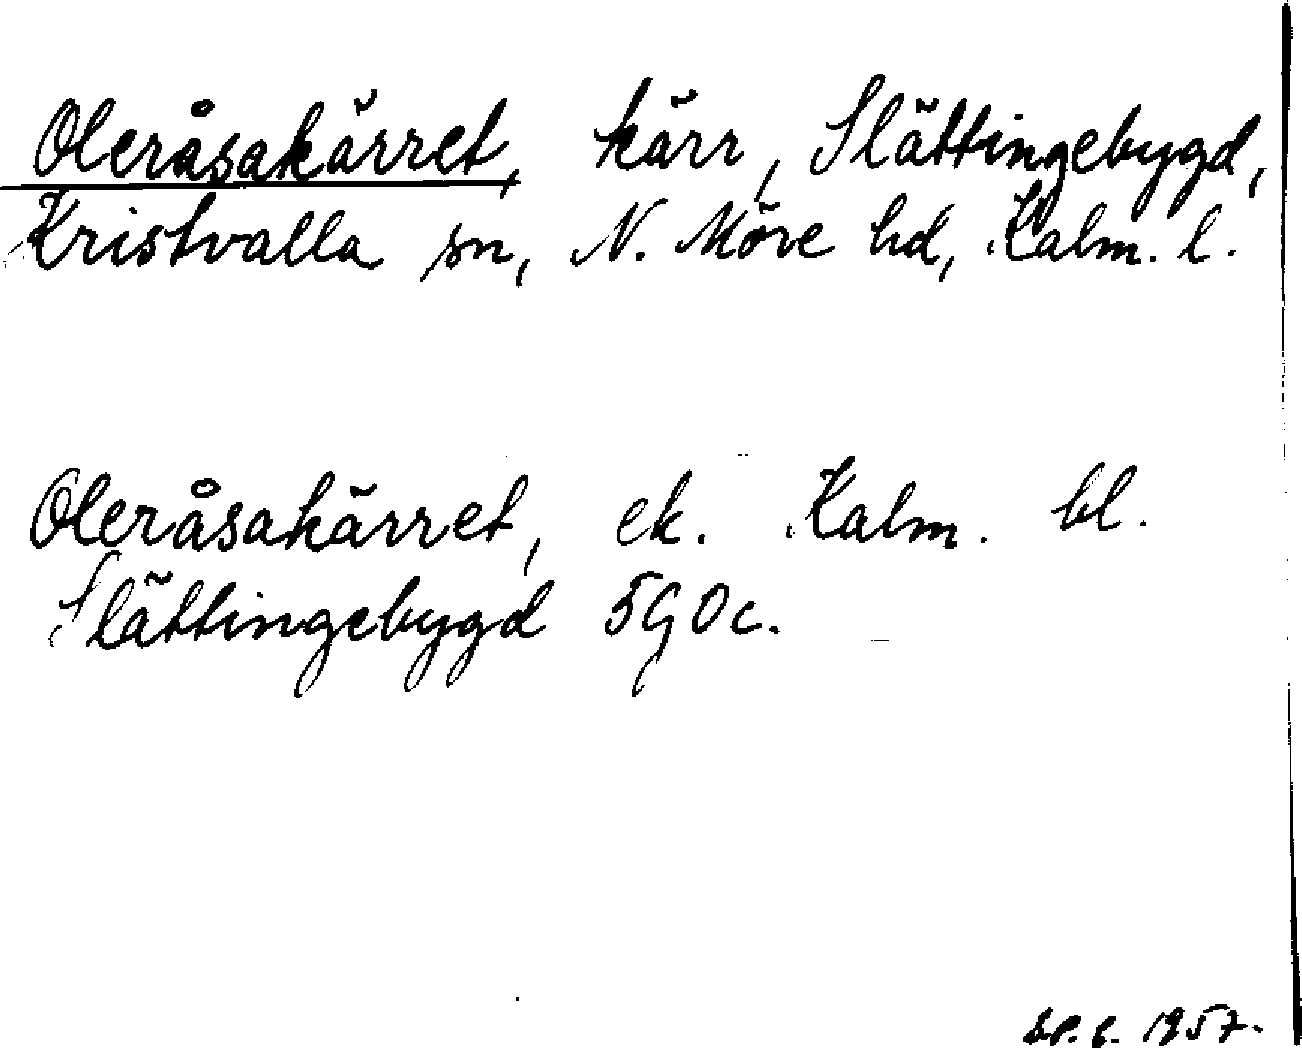 Oleråsakärret, kärr, Slättingebygd,
Kristvalla sn, N. Möre hd, Kalm. l.
Oleråsakärret, ek. Kalm. bl.
Slättingebygd 5G0c.
1957.